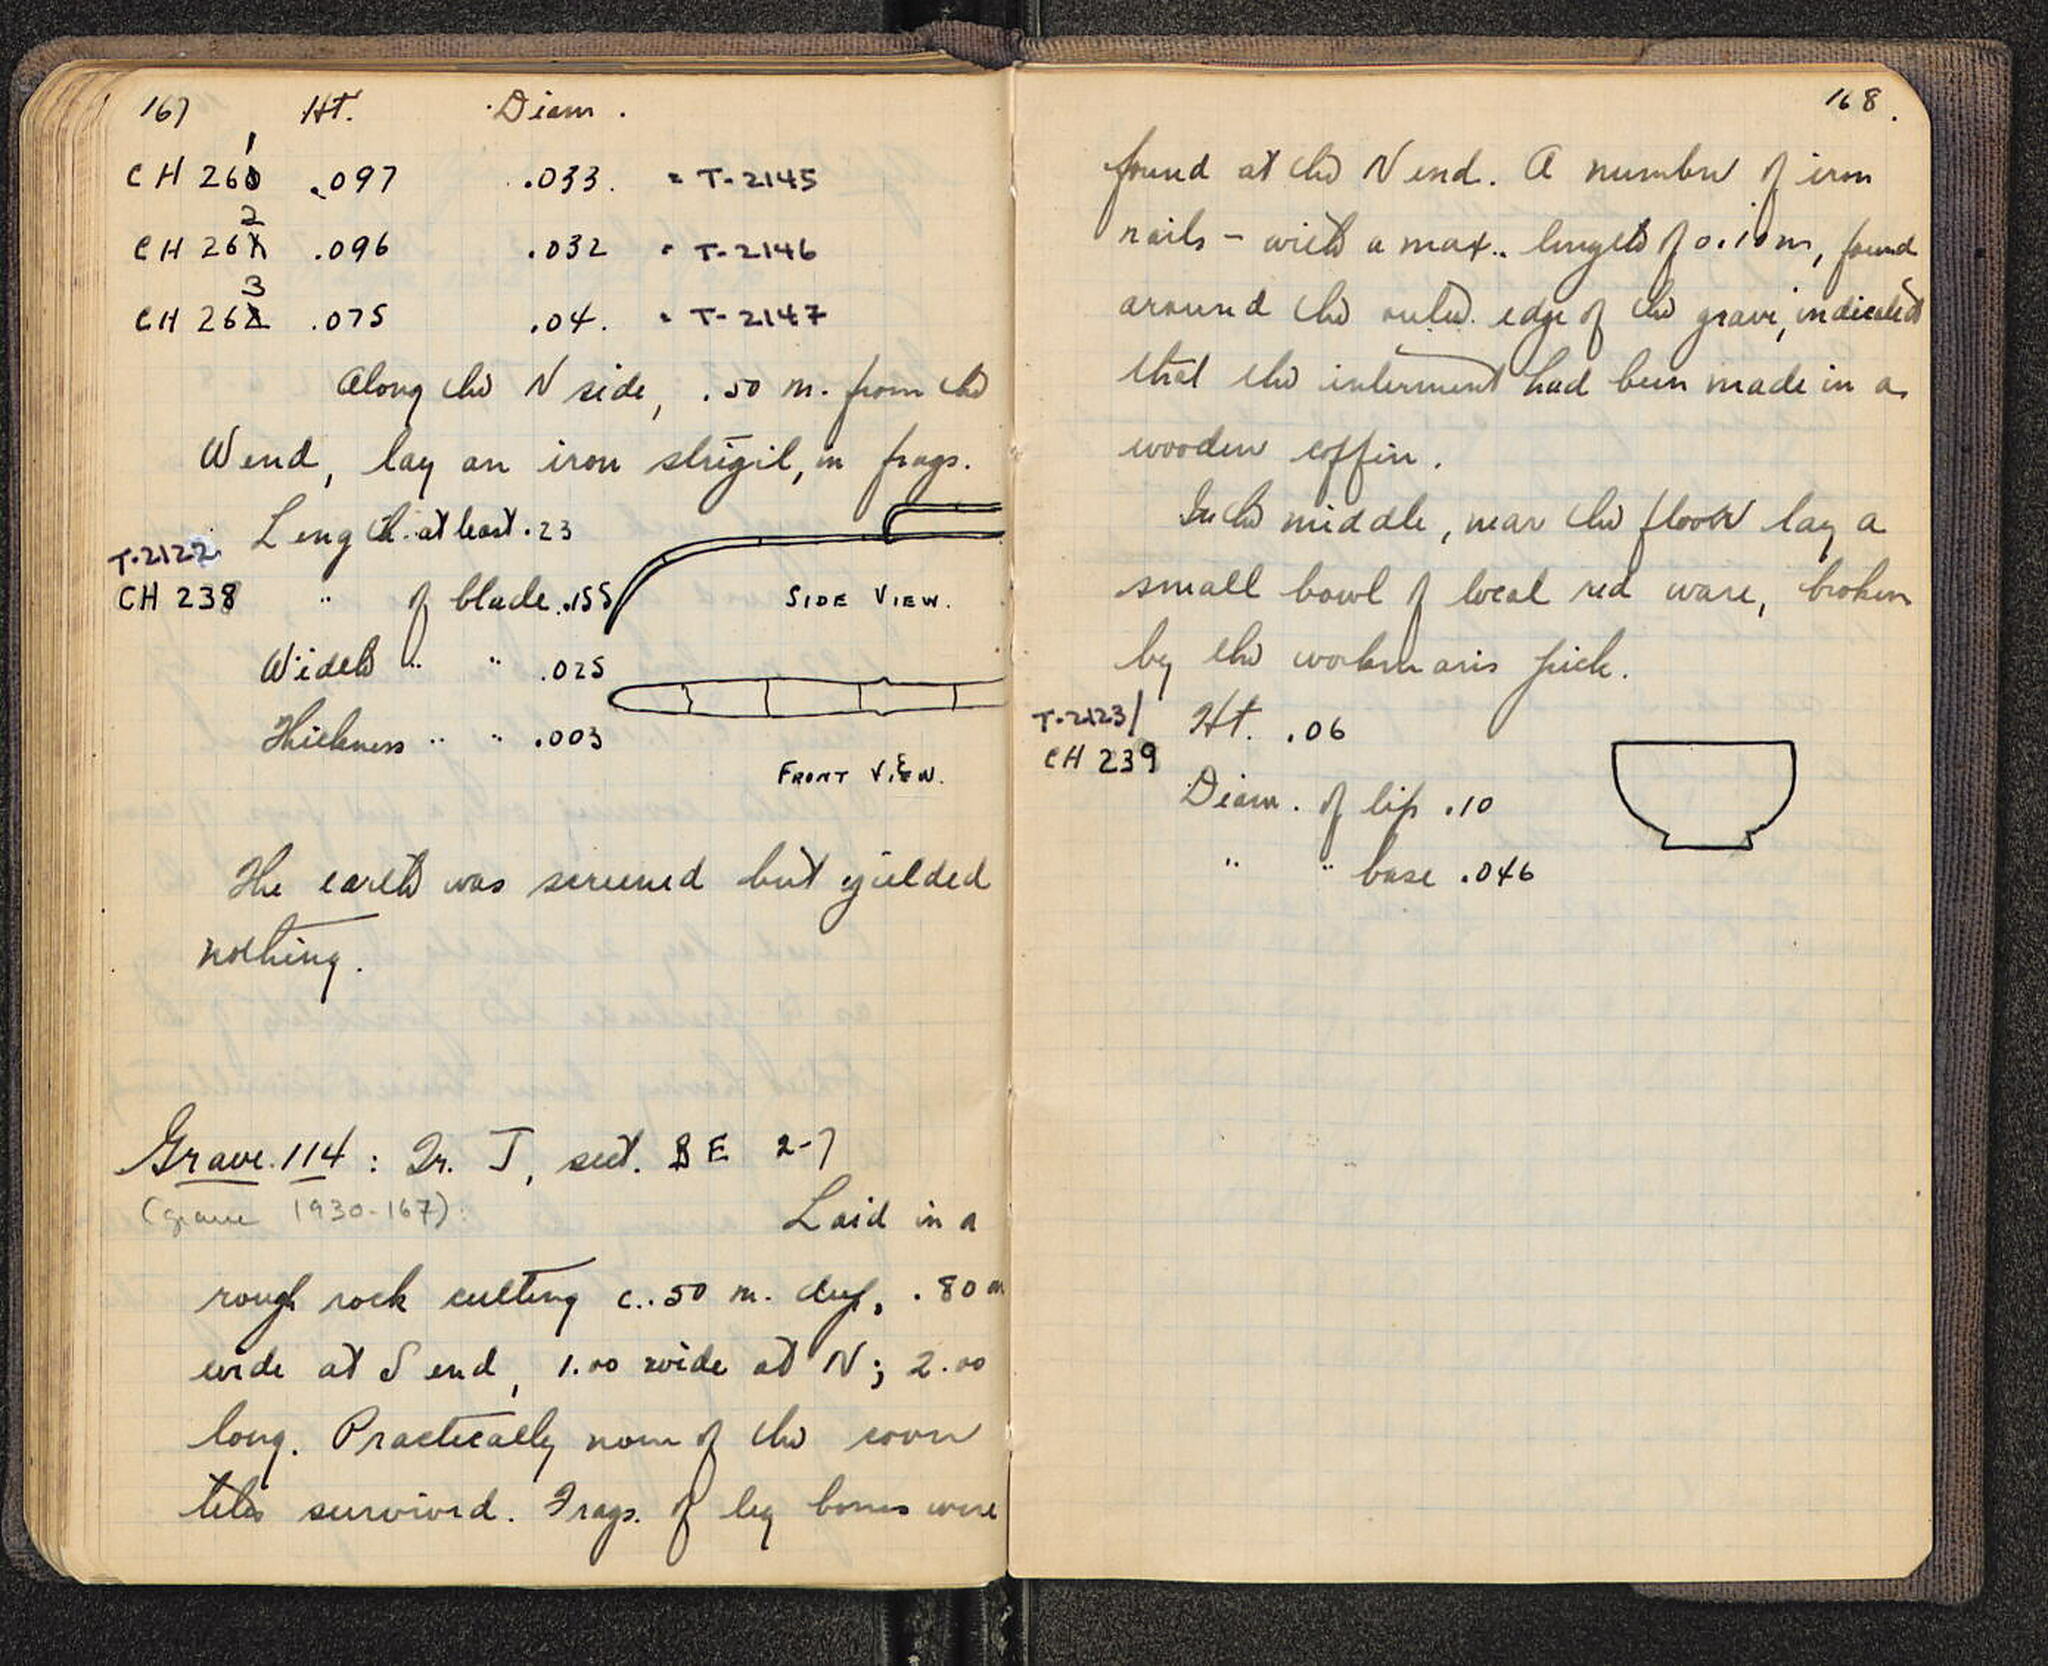 167 Ht. Diam.
CH 261 .097 .033. = T-2145
CH 262 .096 .032 = T-2146
CH 263 .075 .04. = T-2147
Along the N side, .50 m. from the
W end, lay an iron strigil, in frags.
Length at least .23
T-2122
CH 238 " of blade .155
SIDE VIEW.
Width " " .025
Thickness " " .003
FRONT VIEW.
The earth was screened but yielded
nothing.
Grave 114 : Tr. J, sect. BE 2-7
(grave 1930-167):
Laid in a
rough rock cutting c. .50 m. deep, .80 m
wide at S end, 1.00 wide at N; 2.00
long. Practically none of the cover
tiles survived. Frags. of leg bones were
168.
found at the N end. A number of iron
nails - with a max. length of 0.10 m, found
around the outer edge of the grave, indicated
that the interment had been made in a
wooden coffin.
In the middle, near the floor lay a
small bowl of local red ware, broken
by the workman's pick.
T-2123/
CH 239
Ht. .06
Diam. of lip .10
" " base .046